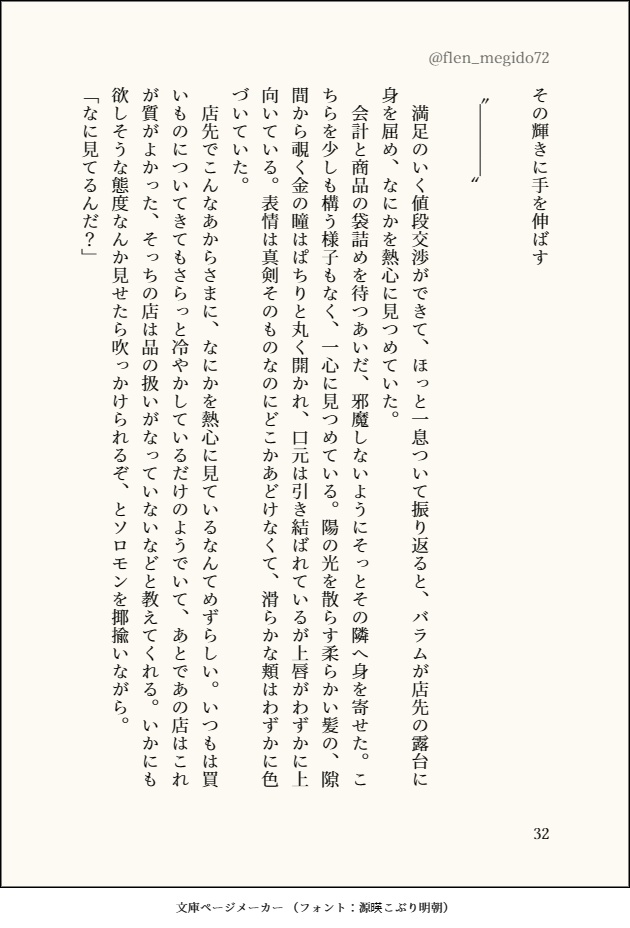 @flen_megido72
その輝きに手を伸ばす
〝―――〟
満足のいく値段交渉ができて、ほっと一息ついて振り返ると、バラムが店先の露台に
身を屈め、なにかを熱心に見つめていた。
会計と商品の袋詰めを待つあいだ、邪魔しないようにそっとその隣へ身を寄せた。こ
ちらを少しも構う様子もなく、一心に見つめている。陽の光を散らす柔らかい髪の、隙
間から覗く金の瞳はぱちりと丸く開かれ、口元は引き結ばれているが上唇がわずかに上
向いている。表情は真剣そのものなのにどこかあどけなくて、滑らかな頬はわずかに色
づいていた。
店先でこんなあからさまに、なにかを熱心に見ているなんてめずらしい。いつもは買
いものについてきてもさらっと冷やかしているだけのようでいて、あとであの店はこれ
が質がよかった、そっちの店は品の扱いがなっていないなどと教えてくれる。いかにも
欲しそうな態度なんか見せたら吹っかけられるぞ、とソロモンを揶揄いながら。
「なに見てるんだ？」
32
文庫ページメーカー （フォント：源暎こぶり明朝）